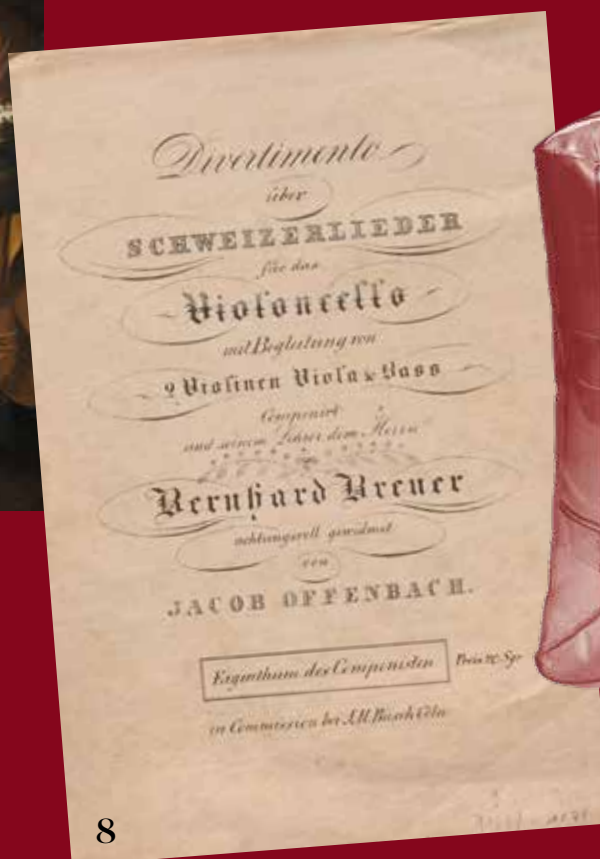 Divertimento
über
SCHWEIZERLIEDER
für das
Violoncello
mit Begleitung von
2 Violinen Viola & Bass
Componirt
und seinem Lehrer dem Herrn
Bernhard Breuer
achtungsvoll gewidmet
von
JACOB OFFENBACH.
Eigenthum des Componisten
Preis Sgr
in Commission bei Cöln
8